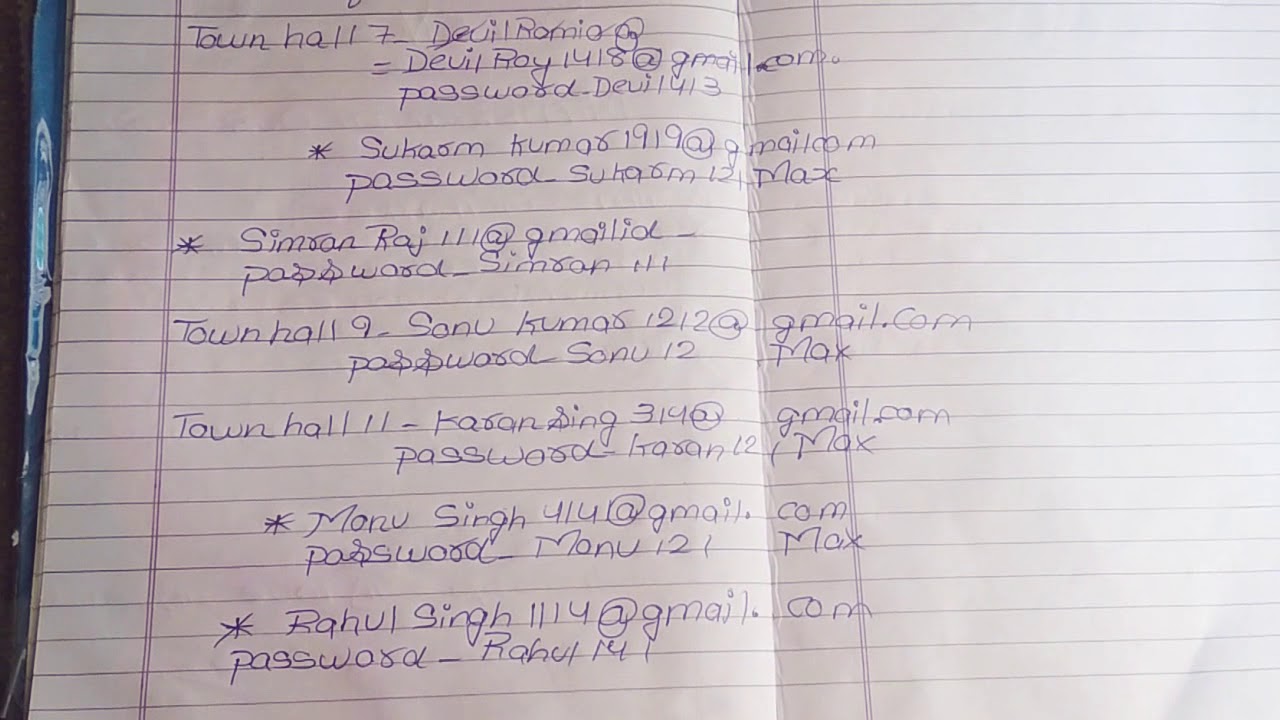 Town hall 7- Devil Romio@
= DevilRoy1418@gmail.com.
password-Devil413
* Sukarm kumar1919@gmailcom
password-Sukarm 121 Max
* Simran Raj 111@gmailid-
password-Simran 111
Town hall 9- Sonu kumar 1212@ gmail.com
password-Sonu 12 Max
Town hall 11 - karan Sing 314@ gmail.com
password-karan12 / Max
* Monu Singh 414@gmail. com
password- Monu 121 Max
* Rahul Singh 1114@gmail. com
password - Rahul 141